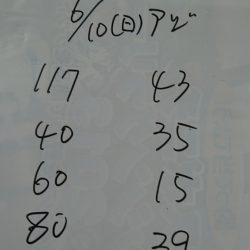 6/10(日)アジ
117 43
40 35
60 15
80 39